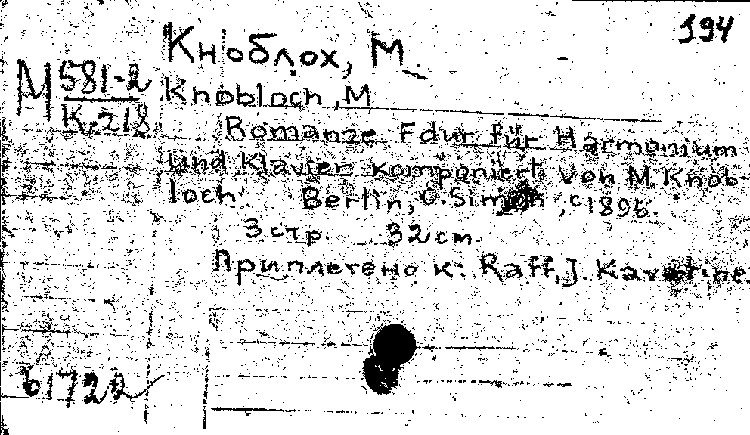 194
Кноблох, М.
М 581-2
К-218
Knobloch, M
Romanze Fdur für Harmonium
und Klavier komponiert von M. Knob-
loch. Berlin, C. Simon, c 1896.
3 стр. 32 см.
Приплетено к: Raff, J. Kavatine.
61722